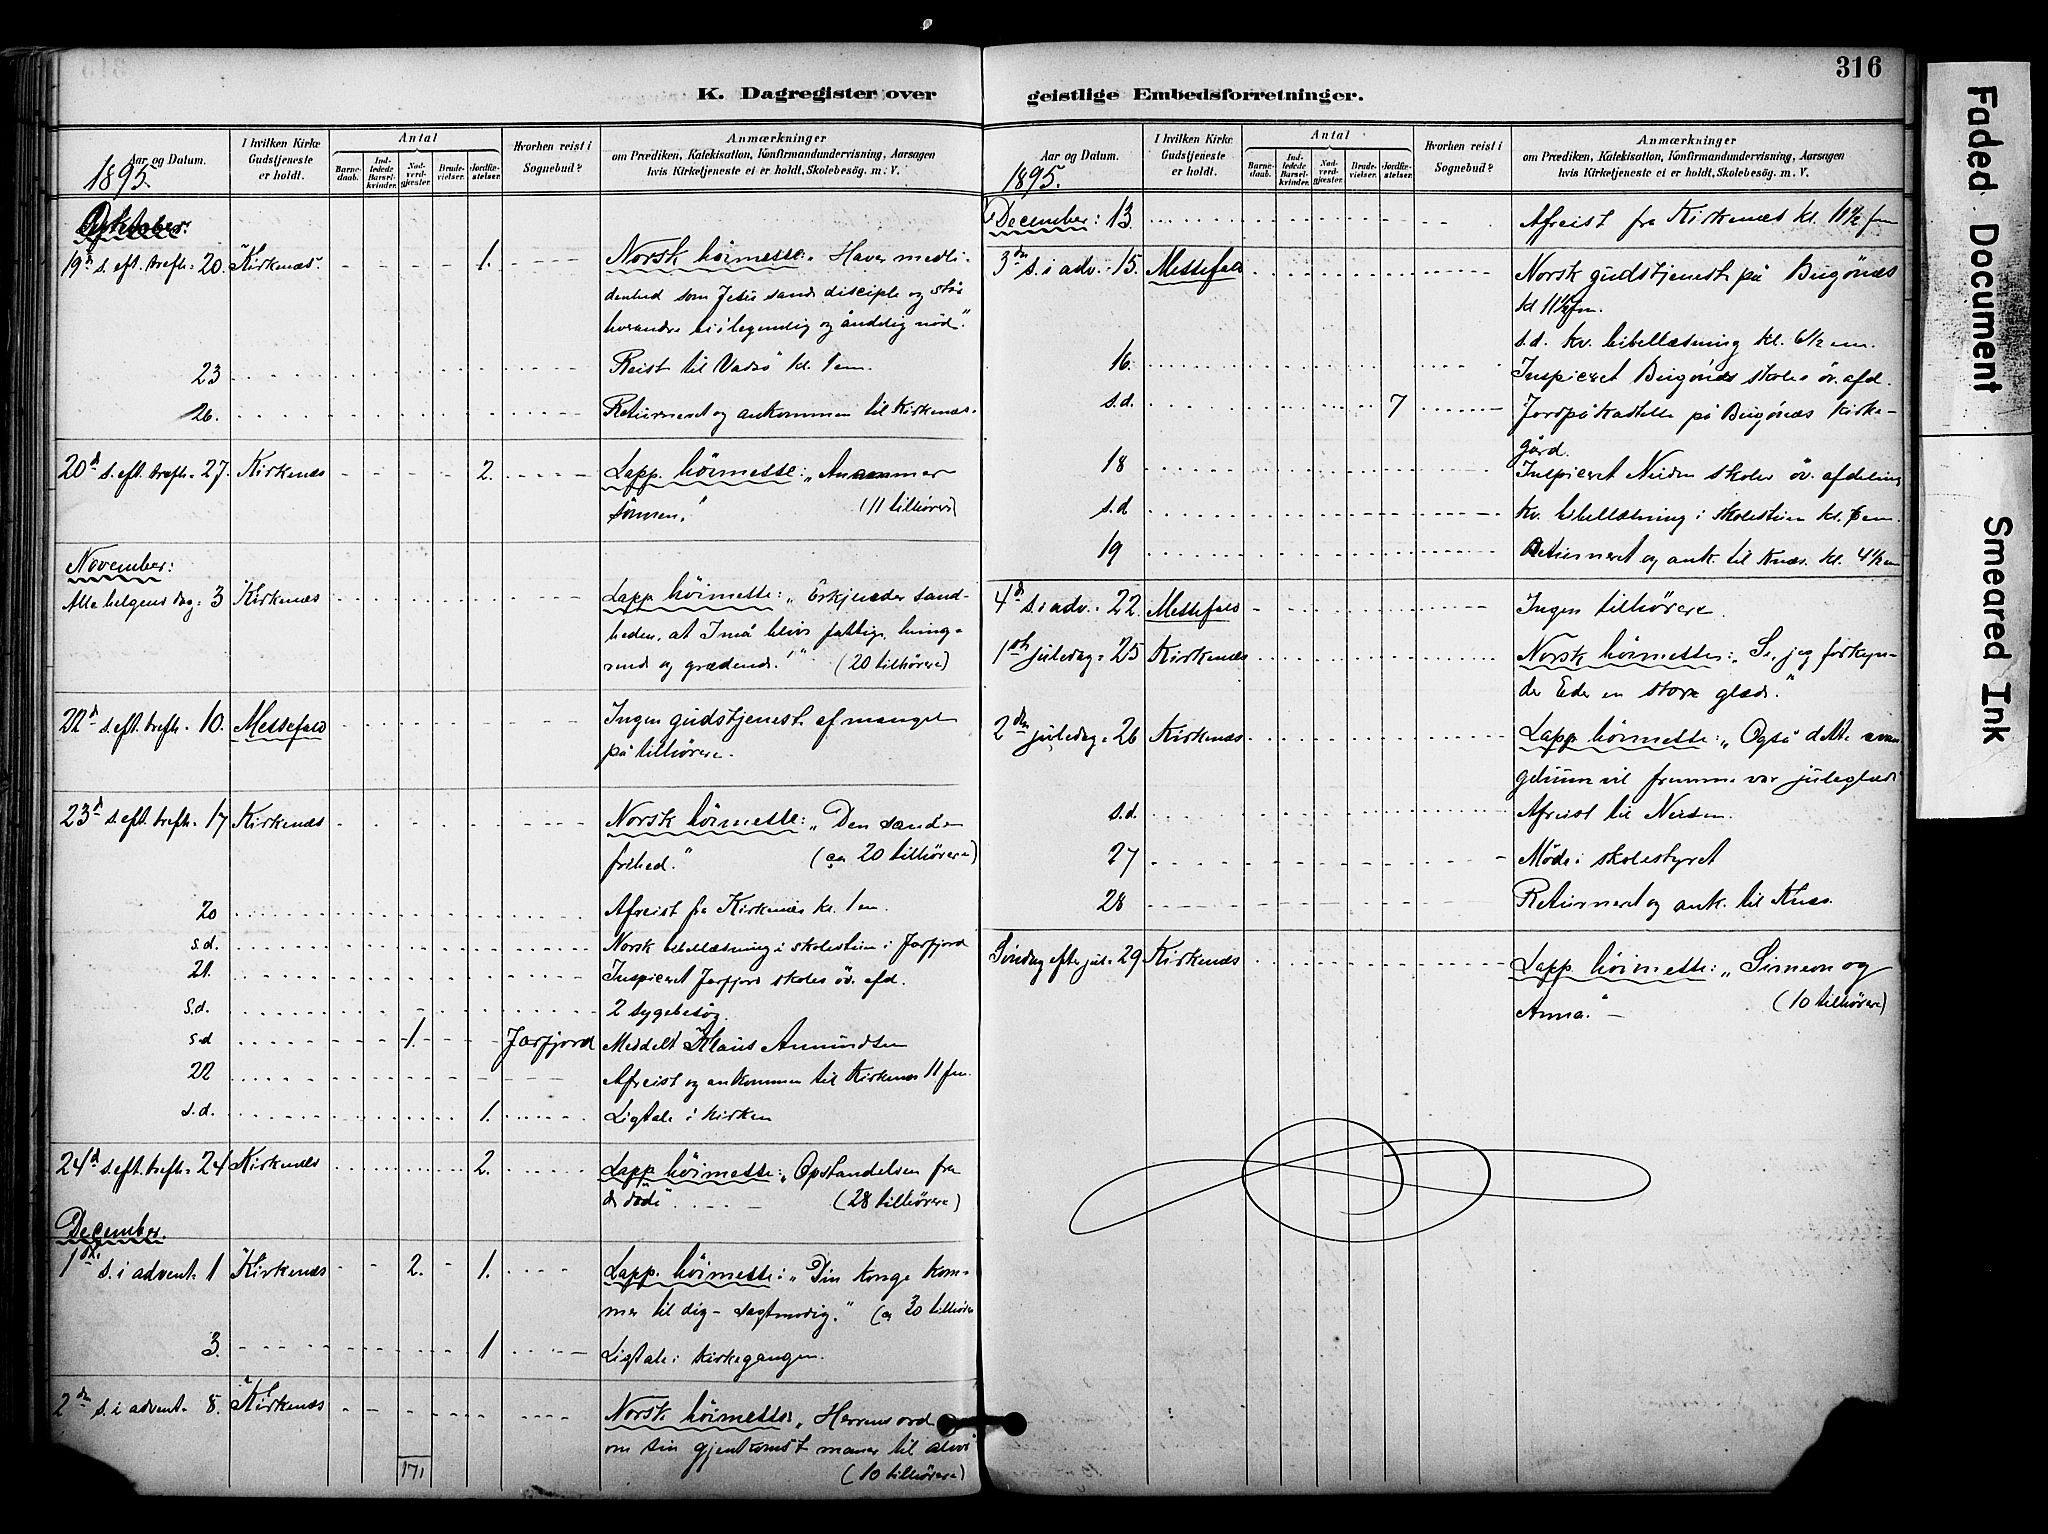 316
K. Dagregister over
geistlige Embedsforretninger.
Aar og Datum.
I hvilken Kirke Gudstjeneste er holdt.
Antal
Barnedaab.
Indledede Barselkvinder.
Nadverdgjester.
Brudevielser.
Jordfæstelser.
Hvorhen reist i Sognebud?
Anmærkninger
om Prædiken, Katekisation, Konfirmandundervisning, Aarsagen
hvis Kirketjeneste ei er holdt, Skolebesög. m. V.
1895.
Oktober:
19d s. eft. trefh. 20. Kirkenæs. 1. Norsk höimesse: „Haver medli-
denhed som Jesu sande disciple og stå
hverandre bi i legemlig og åndelig nöd."
23 Reist til Vadsö kl. 1 em.
26. Returneret og ankommen til Kirkenæs.
20d s. eft. trefh. 27. Kirkenæs 2. Lapp. höimesse: „
sönnen." (11 tilhörere)
November:
Alle helgens dag 3 Kirkenæs Lapp. höimesse: „Erkjender sand-
heden, at I må blive fattige, hung-
rende og grædende!" (20 tilhörere)
22d s. eft. trefh. 10. Messefald Ingen gudstjeneste af mangel
på tilhörere.
23d s. eft. trefh. 17 Kirkenæs Norsk höimesse: „Den sande
frihed." (ca 20 tilhörere)
20 Afreist fra Kirkenæs kl. 1 em.
s.d. Norsk bibellæsning i skolestuen i Jarfjord
21. Inspiceret Jarfjord skoles öv. afd.
s.d. 2 sygebesög.
s.d 1. Jarfjord Meddelt Klaus Amundsen
22 Afreist og ankommen til Kirkenæs 11 fm.
s.d. 1. Ligtale i kirken
24d s. eft. trefh. 24 Kirkenæs 2. Lapp. höimesse: „Opstandelsen fra
de döde" (28 tilhörere)
December.
1ste s. i advent. 1 Kirkenæs 2. 1. Lapp. höimesse: „Din konge kom-
mer til dig – sagtmodig." (ca 30 tilhörere
3. 1 Ligtale i kirkegangen.
2den s. i advent. 8. Kirkenæs Norsk höimesse: „Herrens ord
om sin gjenkomst maner til alvor
171 (10 tilhörere)
Aar og Datum.
I hvilken Kirke Gudstjeneste er holdt.
Antal
Barnedaab.
Indledede Barselkvinder.
Nadverdgjester.
Brudevielser.
Jordfæstelser.
Hvorhen reist i Sognebud?
Anmærkninger
om Prædiken, Katekisation, Konfirmandundervisning, Aarsagen
hvis Kirketjeneste ei er holdt, Skolebesög. m. V.
1895.
December: 13. Afreist fra Kirkenæs kl. 11½ fm
3die s. i adv. 15. Messefald Norsk gudstjeneste på Bugönæs
kl 11½ fm.
s.d. kv. bibellæsning kl. 6½ em.
16. Inspiceret Bugönæs skoles öv. afd.
s.d. 7 Jordpåkastelse på Bugönæs kirke-
gård.
18 Inspiceret Neiden skoles öv. afdeling
s.d kv. bibellæsning i skolestuen kl. 6 em.
19 Returneret og ank. til Knæs. kl. 4½ em
4d s. i adv. 22. Messefald Ingen tilhörere.
1ste juledag 25 Kirkenæs Norsk höimesse: „Se, jeg forkyn-
der Eder en stor glæde."
2den juledag 26 Kirkenæs Lapp. höimesse: „Også dette evan
gelium vil fremme vor juleglæde
s.d. Afreist til Neiden.
27 Möde i skolestyret
28 Returneret og ank. til Knæs.
Söndag efter jul 29 Kirkenæs Lapp. höimesse: „Simeon og
Anna." – (10 tilhörere)
Faded Document
Smeared Ink